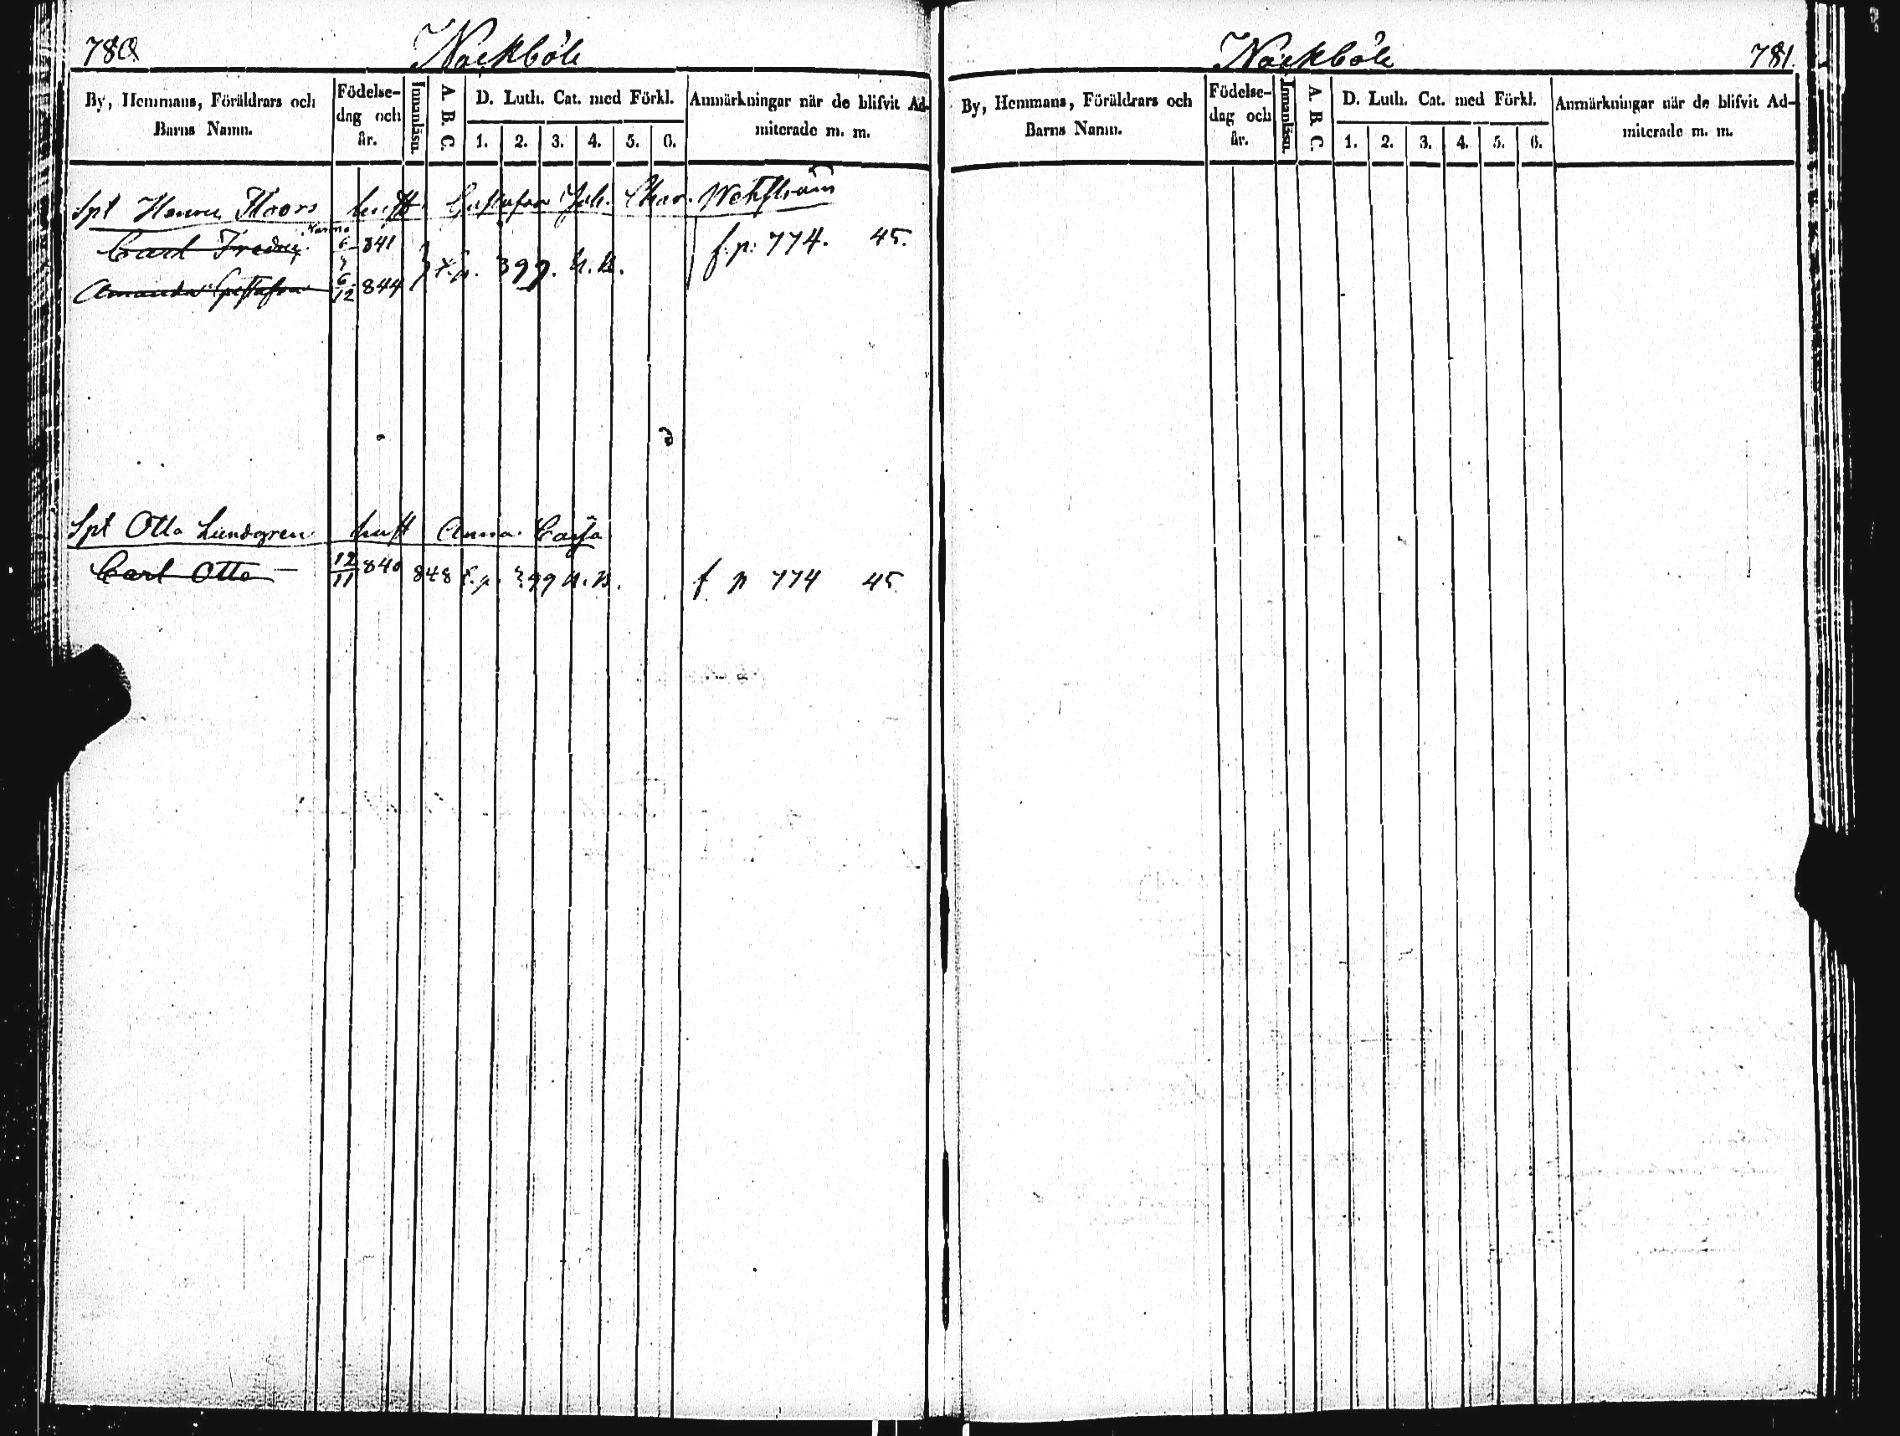 780 Nackböle
By, Hemmans, Föräldrars och Barns Namn.
Födelse-dag och år.
Innanläsn.
A. B. C.
D. Luth. Cat. med Förkl.
1. 2. 3. 4. 5. 6.
Anmärkningar när de blifvit Ad-
miterade m. m.
Spt Henric Thoors hust
Carl Fredric 841
f. p. 774. 45.
399. n. B.
Amanda Gustafva 6/12 844
Spt Otto Lundgren hust Anna Cajsa
Carl Otto 12/11 840 848 f. p. 399 n. B. f p 774 45
Nackböle 781.
By, Hemmans, Föräldrars och
Barns Namn.
Födelse-
dag och
år.
Innanläsn.
A. B. C.
D. Luth. Cat. med Förkl.
1. 2. 3. 4. 5. 6.
Anmärkningar när de blifvit Ad-
miterade m. m.